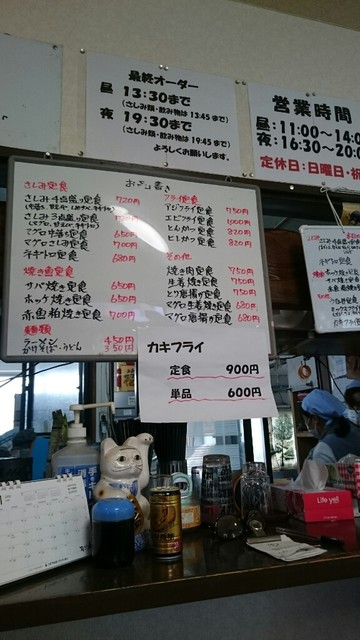 最終オーダー
昼 13:30まで
(さしみ類・飲み物は 13:45 まで)
夜 19:30まで
(さしみ類・飲み物は 19:45 まで)
よろしくお願いします。
営業時間
昼:11:00~14:0
夜:16:30~20:0
定休日:日曜日・祝
おしながき
さしみ定食
さしみ4点盛り定食 720円
さしみ3点盛り定食
マグロ中落ち定食 650円
マグロさしみ定食 700円
ネギトロ定食 680円
焼き魚定食
サバ焼き定食 650円
ホッケ焼き定食 650円
赤魚粕焼き定食 700円
麺類
ラーメン 450円
かけそば・うどん 350円
フライ定食
アジフライ定食 750円
エビフライ定食 900円
とんかつ定食 820円
ヒレかつ定食 820円
その他
焼き肉定食 750円
生姜焼き定食 750円
とり唐揚げ定食 750円
マグロ生姜焼き定食 680円
マグロ唐揚げ定食 680円
カキフライ
定食 900円
単品 600円
Life yell